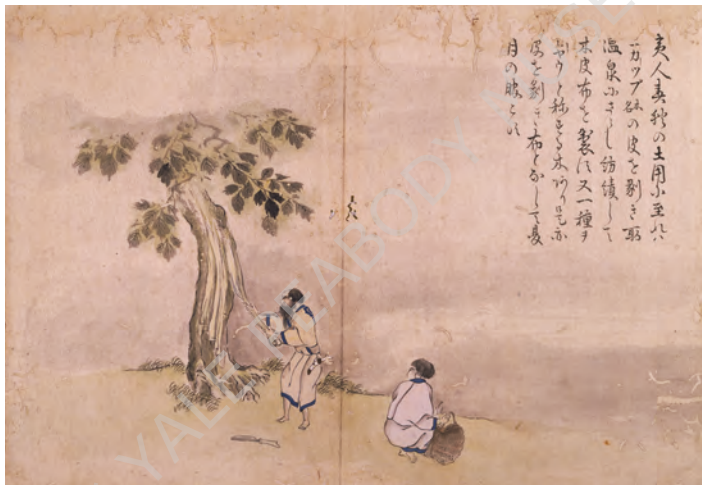 夷人春秋の土用に至れハ
カツプの皮を剥き取
温泉にさらし紡績して
木皮布を製す又一種ヲ
と称する木あり是亦
皮を剥き布となして夏
月の服とす
YALE PEABODY MUSE